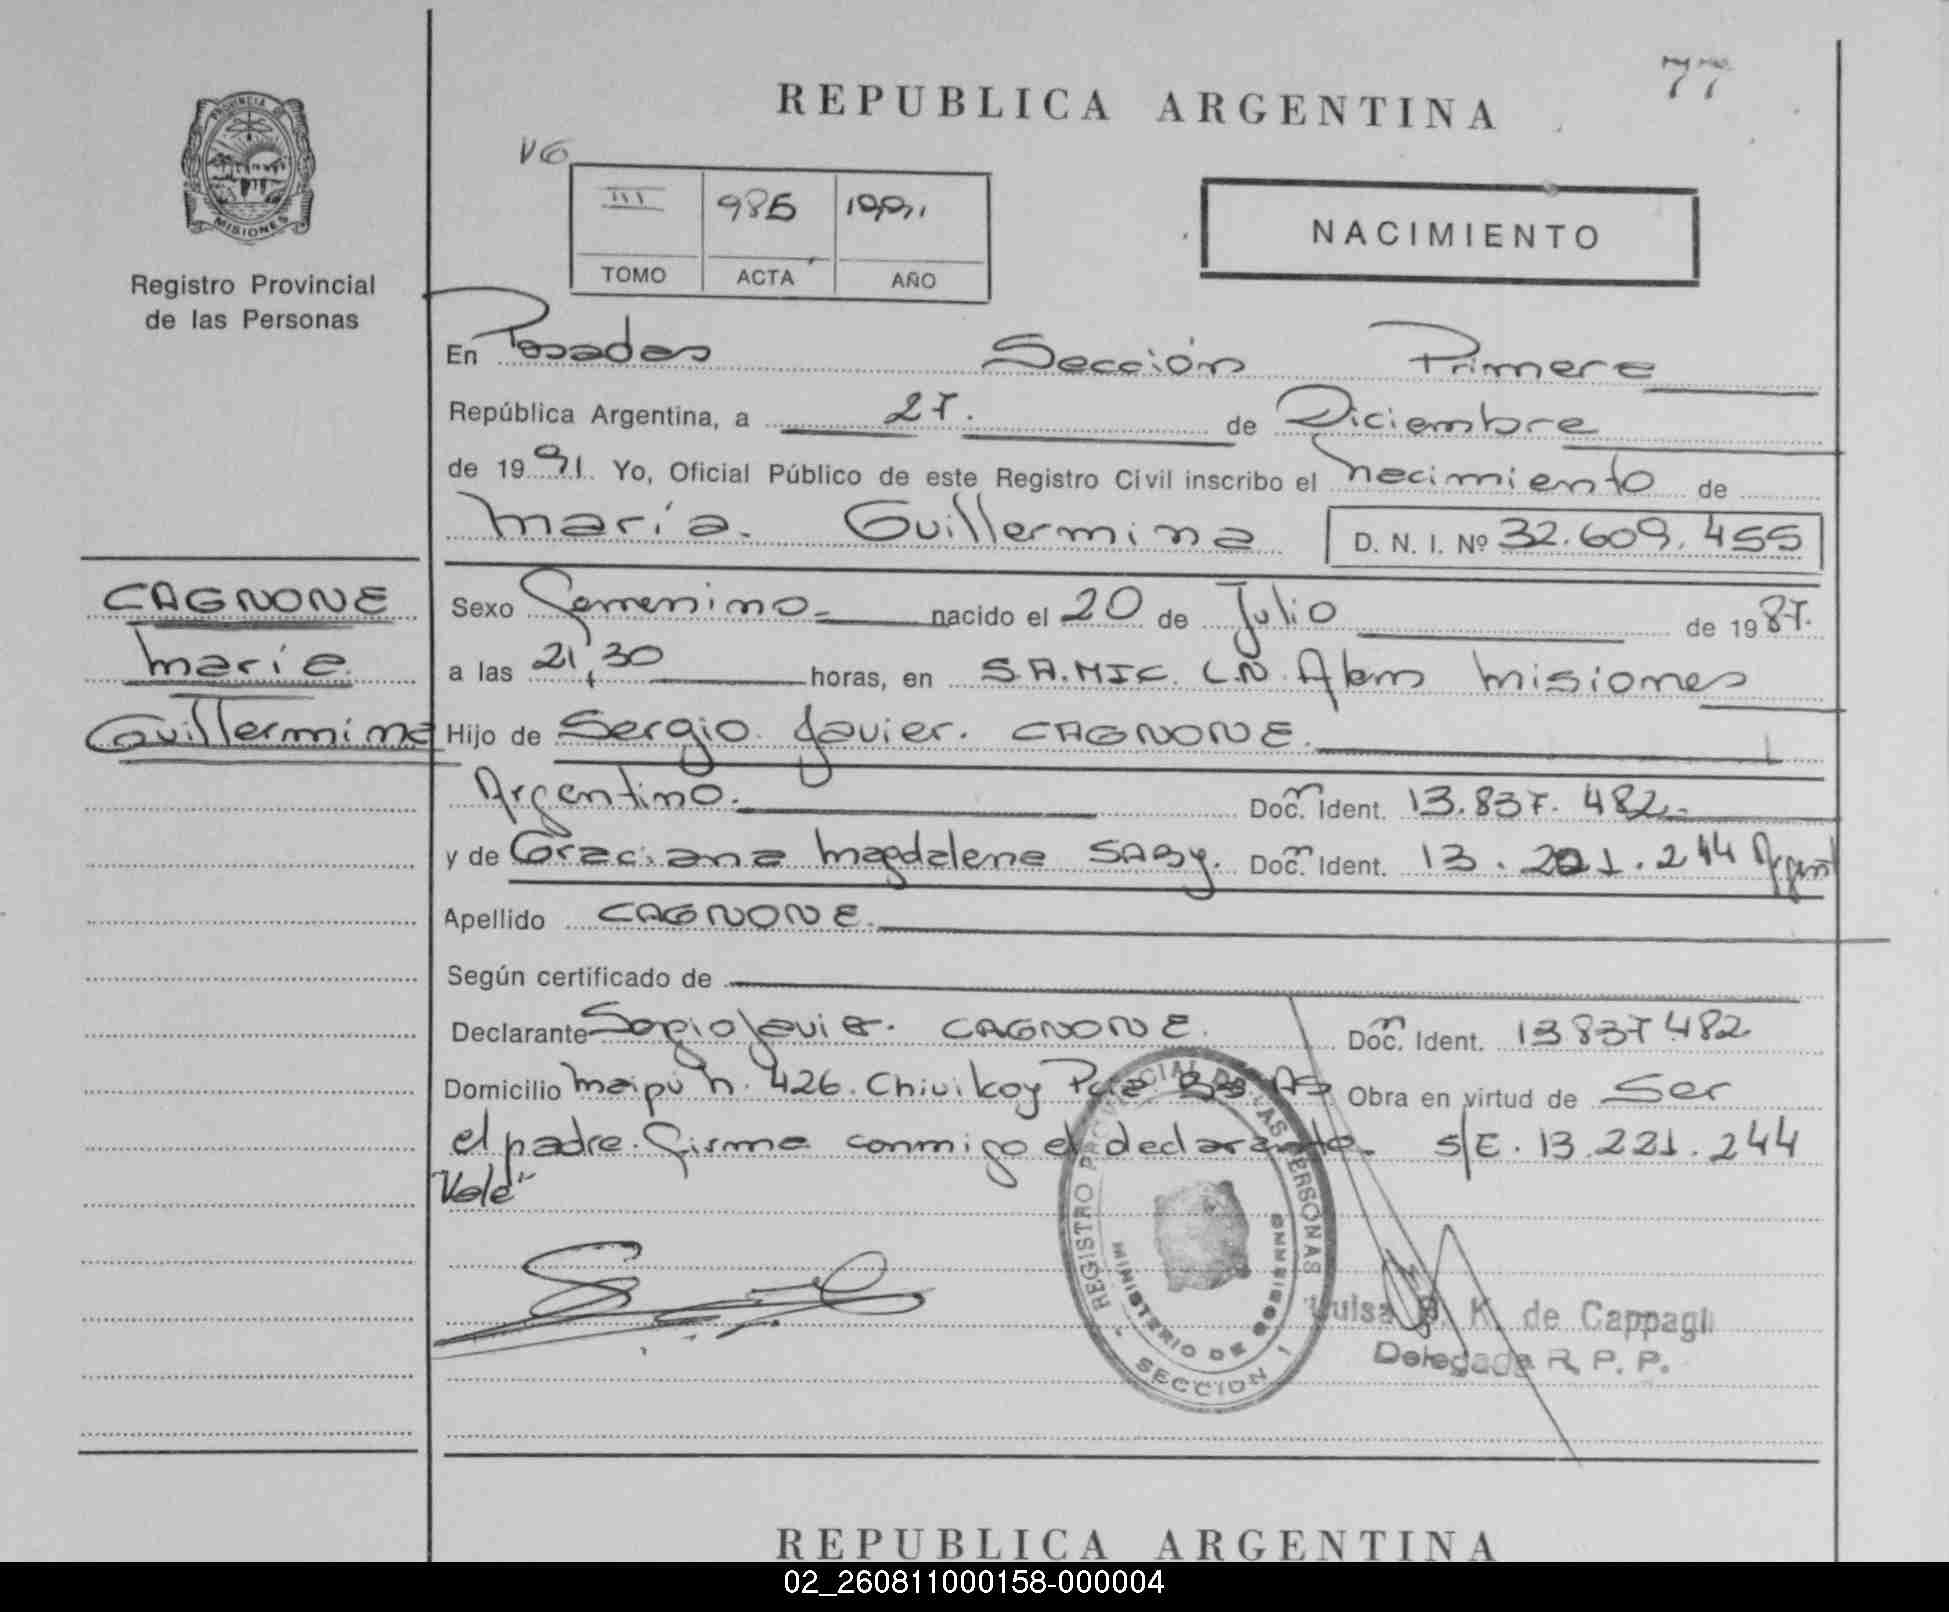 77
REPUBLICA ARGENTINA
V6
III 985 1991
TOMO ACTA AÑO
NACIMIENTO
PROVINCIA DE MISIONES
Registro Provincial
de las Personas
En Posadas Sección Primera
República Argentina, a 27. de Diciembre
de 1991. Yo, Oficial Público de este Registro Civil inscribo el nacimiento de
María. Guillermina D. N. I. Nº 32.609.455
CAGNONE
Maria.
Guillermina
Sexo Femenino nacido el 20 de Julio de 1987.
a las 21,30 horas, en S.A.MIC. L.N. Alem Misiones
Hijo de Sergio Javier. CAGNONE.
Argentino. Doc. Ident. 13.837.482
y de Graciana Magdalena SABY. Doc. Ident. 13.201.244
Apellido CAGNONE.
Según certificado de
Declarante Sergio Javier. CAGNONE. Doc. Ident. 13837482
Domicilio Maipú n. 426. Chivilcoy Pcia Bs As Obra en virtud de Ser
el padre. firma conmigo el declarante. S/E. 13.221.244
Vale"
REGISTRO PROVINCIAL DE LAS PERSONAS
MINISTERIO DE GOBIERNO
SECCION 1
Luisa K. de Cappagli
Delegada R. P. P.
REPUBLICA ARGENTINA
02_260811000158-000004